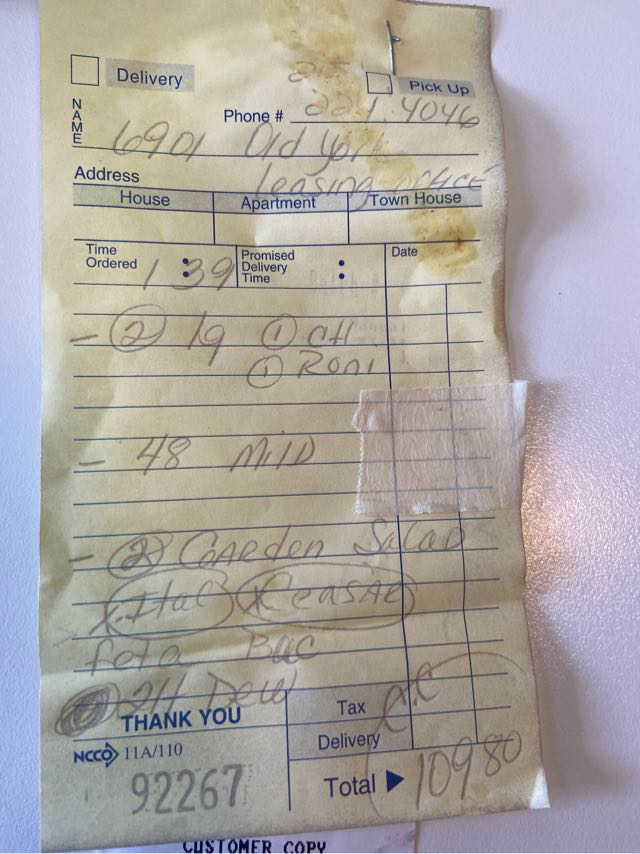 Delivery
Pick Up
215
NAME
Phone # 221.4046
6901 Old York
Address leasing office
House Apartment Town House
Time Ordered : 1 39 Promised Delivery Time : Date
- 2 19 1 CH
1 RONI
- 48 MILD
- 2 GARDEN SALAD
X-Ital X CEASAR
feta Bac
2H DEW
THANK YOU
Tax C.C
NCCO 11A/110
Delivery
92267
Total ▶ 109 80
CUSTOMER COPY